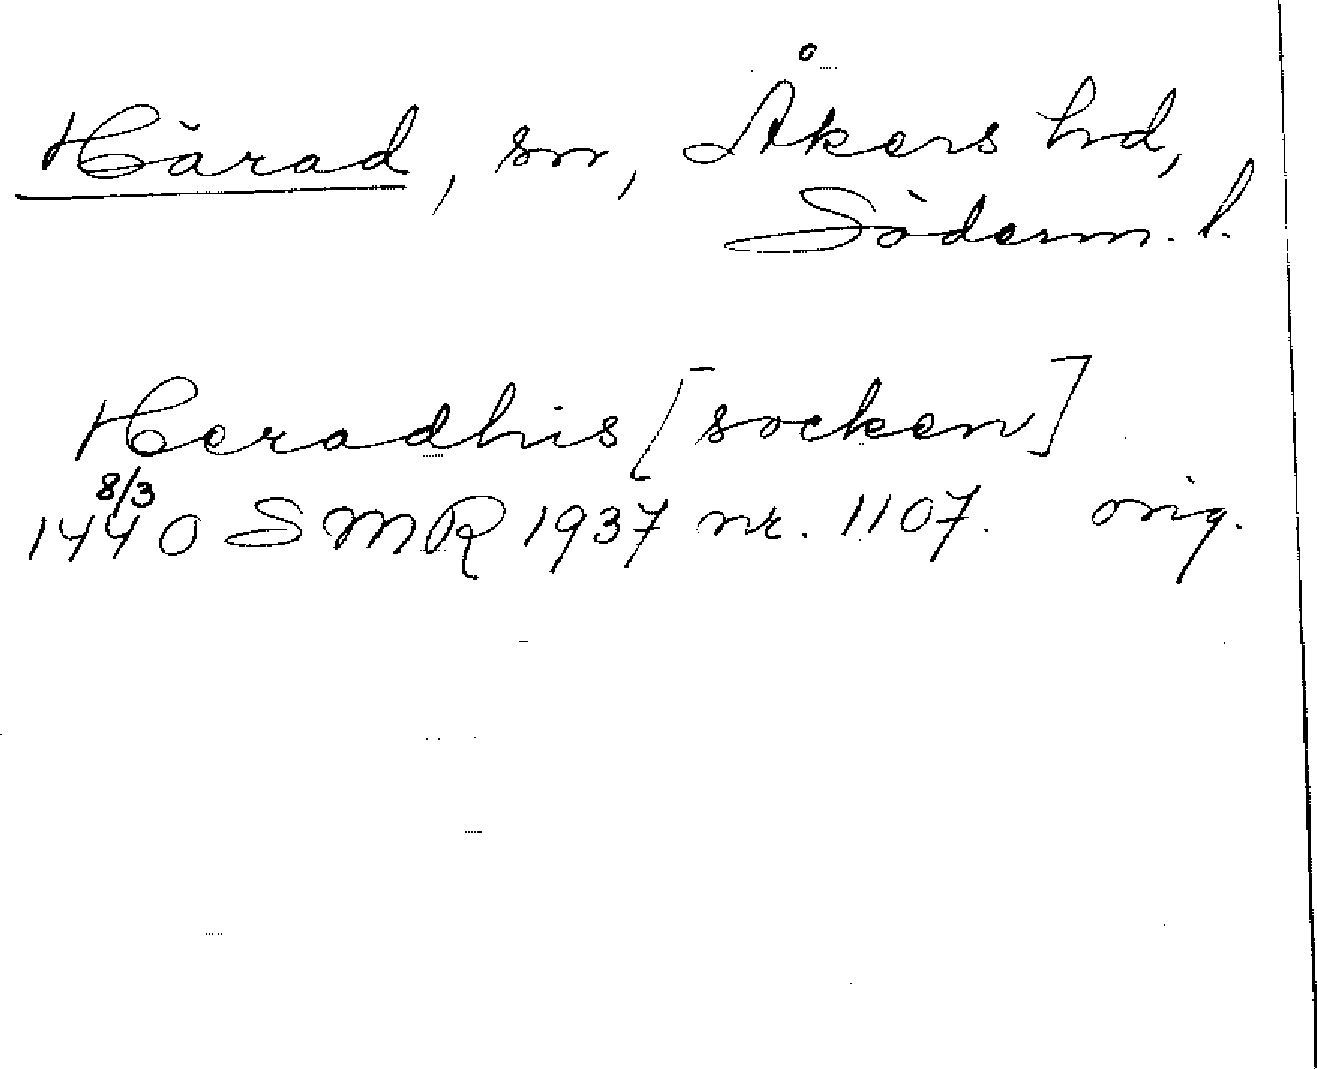 Härad, sn, Åkers hd,
Söderm. l.
Heradhis [socken]
8/3
1440 SMR 1937 nr. 1107. orig.